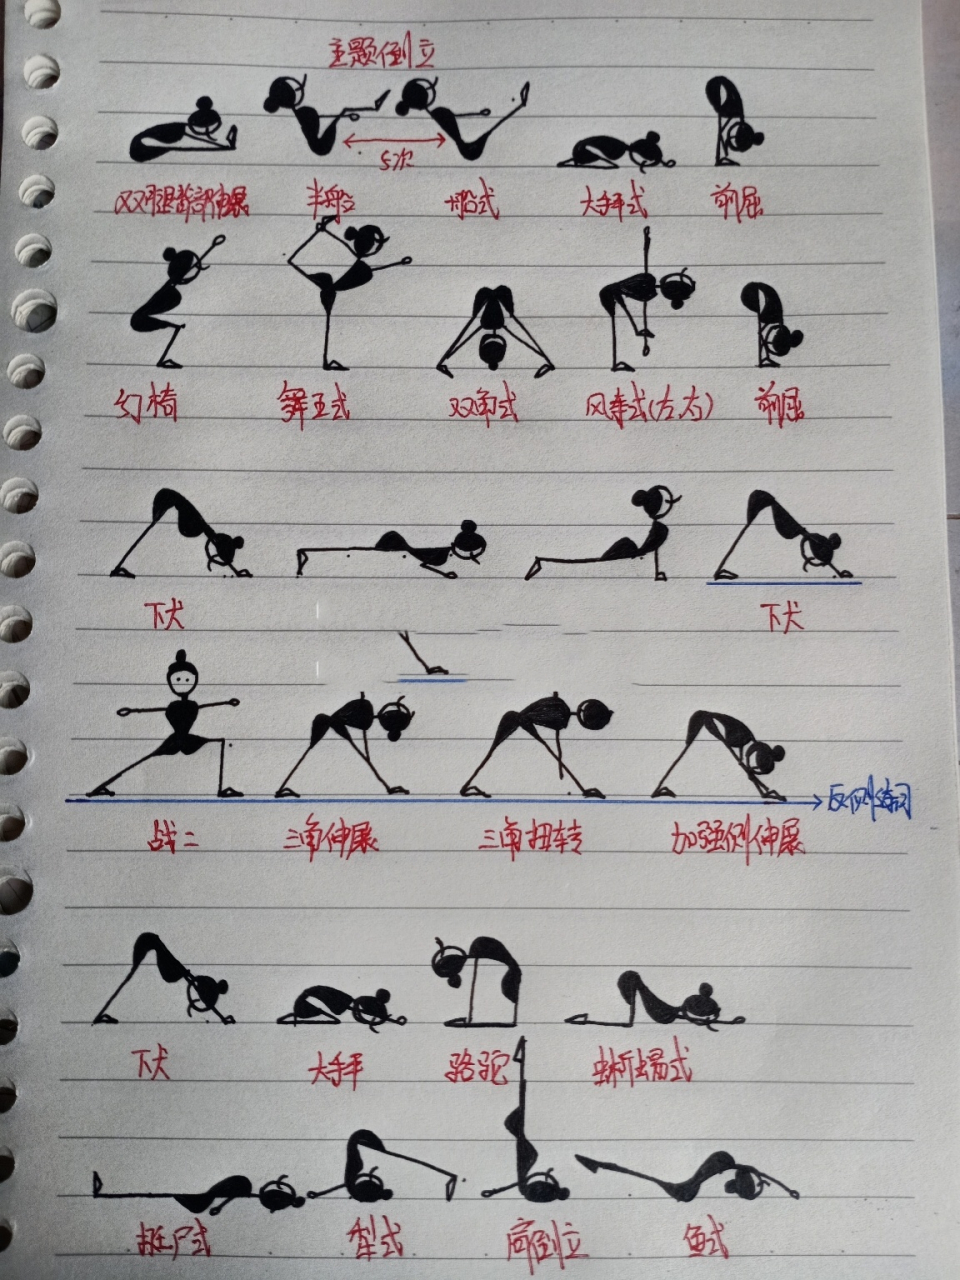 主题倒立
5次
双腿背部伸展 半船 船式 大拜式 前屈
幻椅 舞王式 双角式 风车式(左右) 前屈
下犬 下犬
反侧练习
战二 三角伸展 三角扭转 加强侧伸展
下犬 大拜 骆驼 蜥蜴式
摊尸式 犁式 肩倒立 鱼式